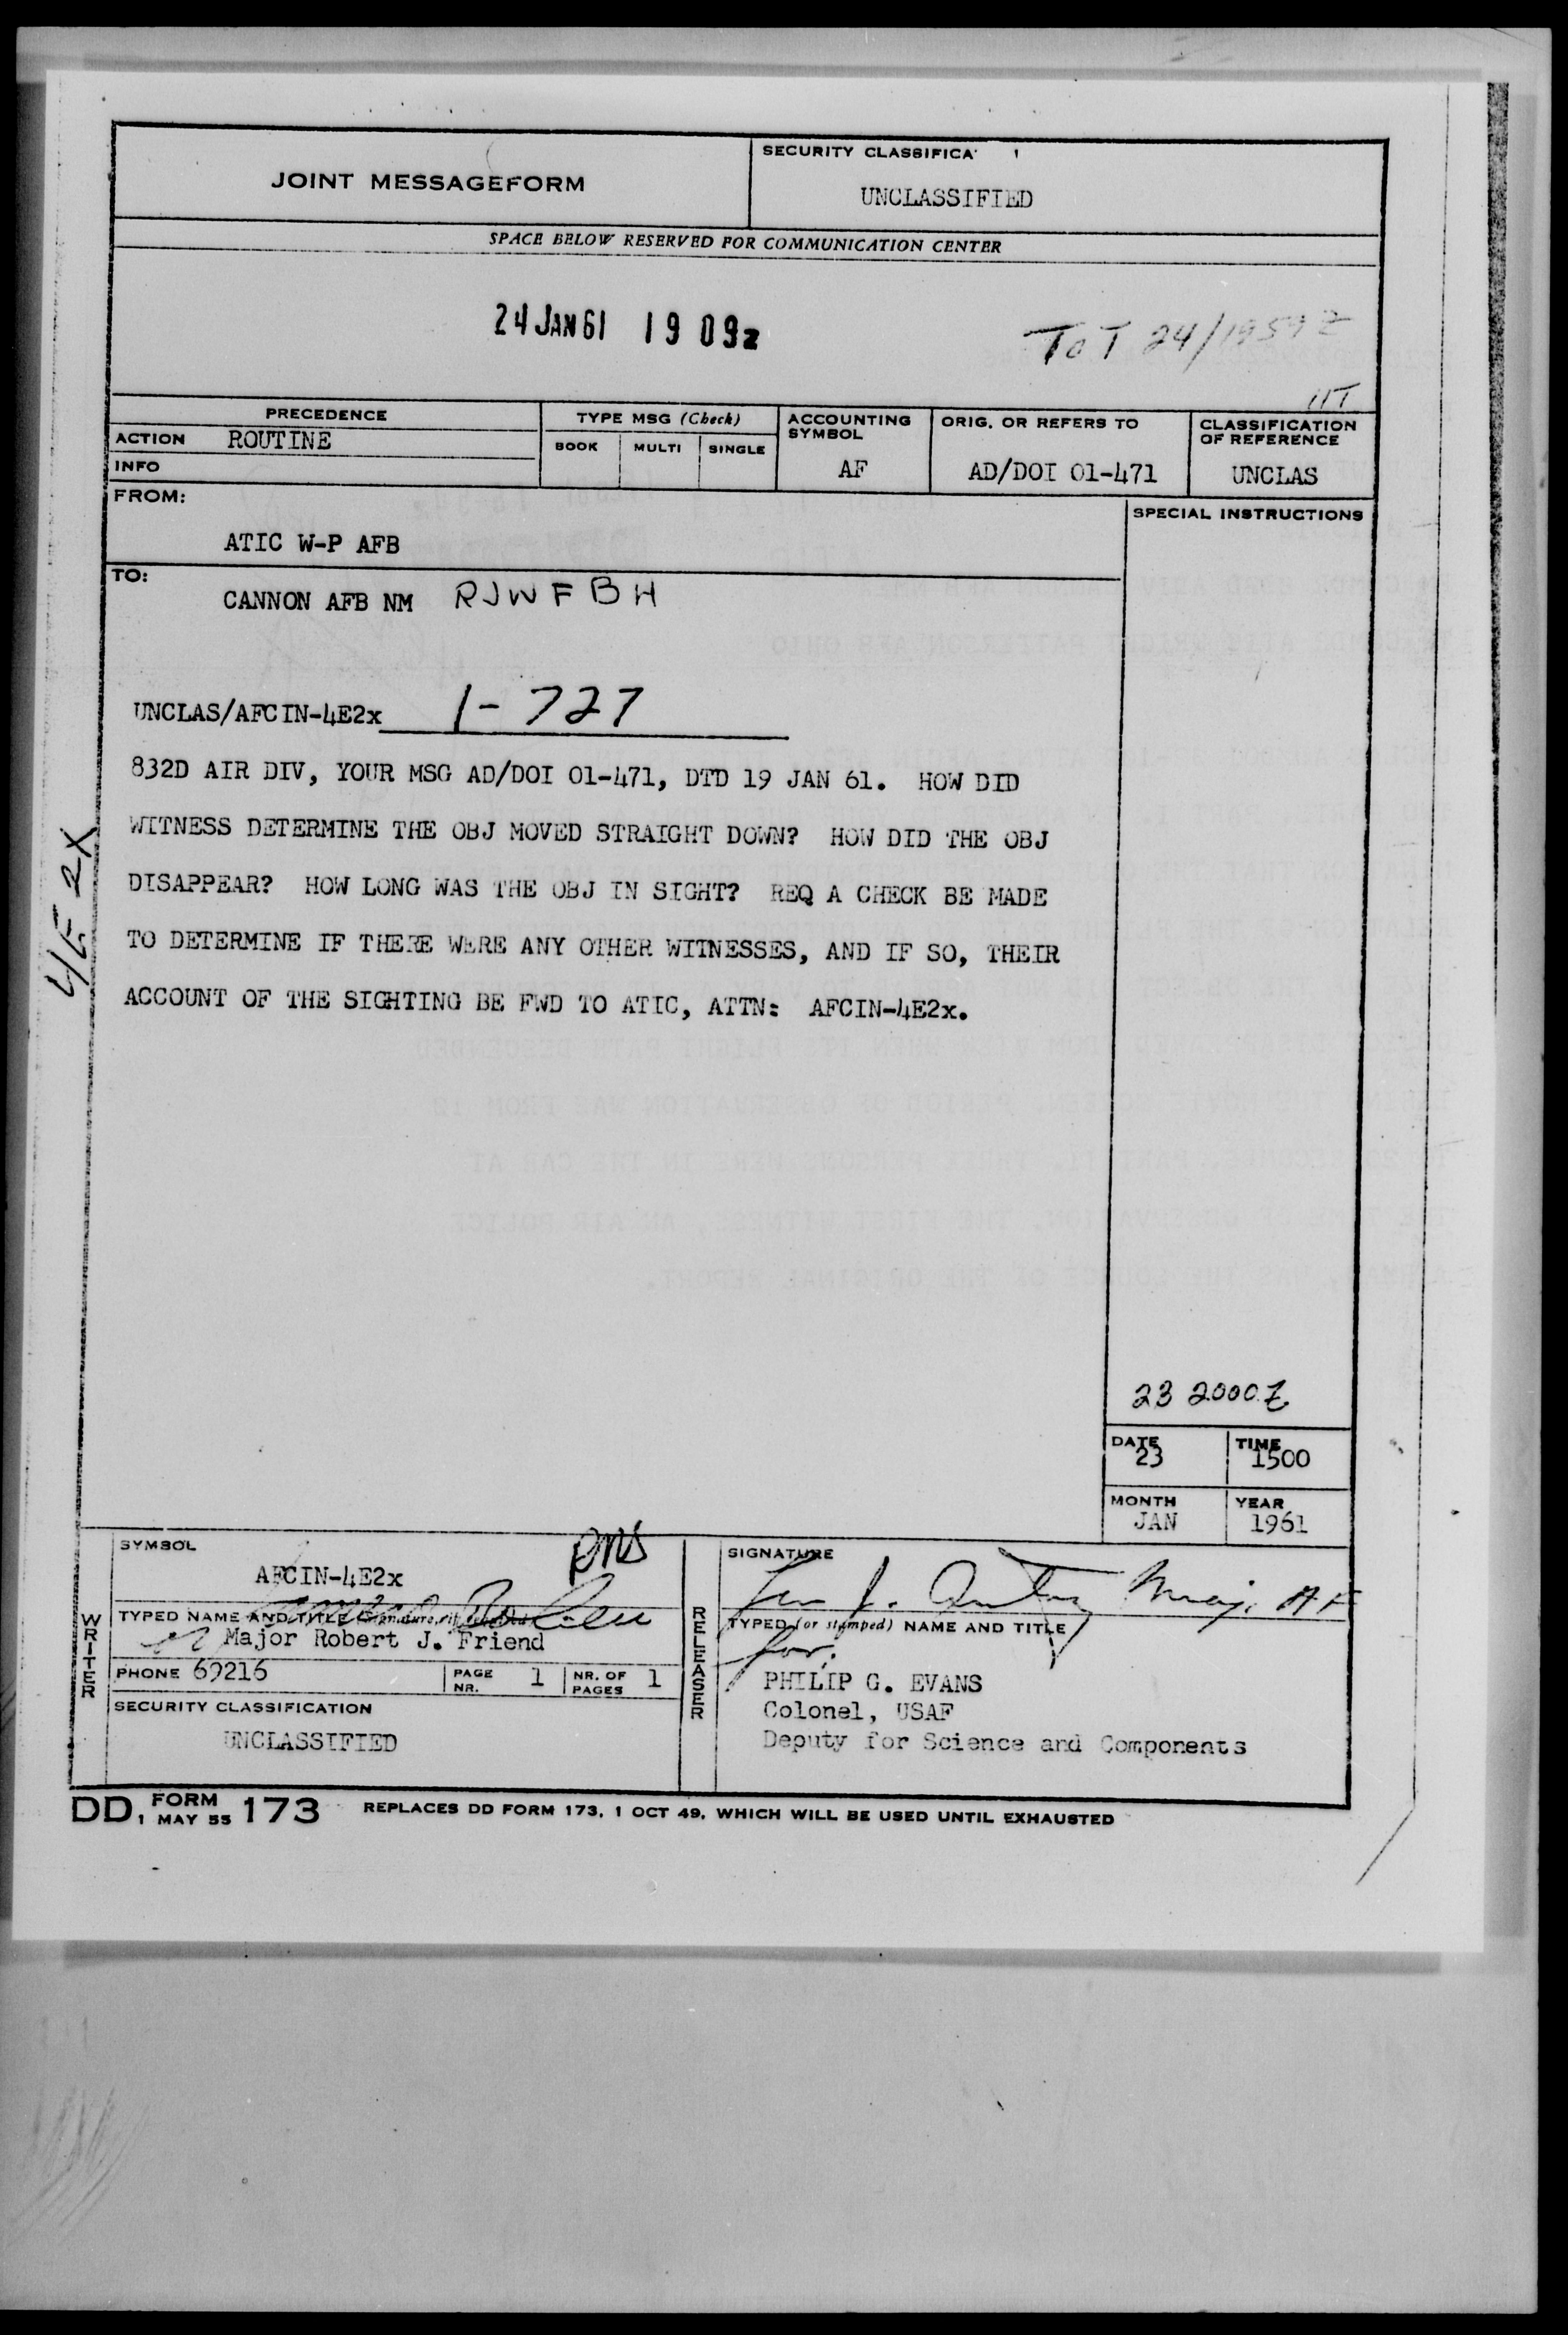 JOINT MESSAGEFORM
SECURITY CLASSIFICA
UNCLASSIFIED
SPACE BELOW RESERVED FOR COMMUNICATION CENTER
24 JAN 61 19 09z
ToT 24/1959Z
PRECEDENCE
TYPE MSG (Check)
ACCOUNTING SYMBOL
ORIG. OR REFERS TO
CLASSIFICATION OF REFERENCE
ACTION ROUTINE
BOOK MULTI SINGLE
INFO
AF
AD/DOI 01-471
UNCLAS
FROM:
SPECIAL INSTRUCTIONS
ATIC W-P AFB
TO:
CANNON AFB NM RJWFBH
UNCLAS/AFCIN-4E2x 1-727
832D AIR DIV, YOUR MSG AD/DOI 01-471, DTD 19 JAN 61. HOW DID
WITNESS DETERMINE THE OBJ MOVED STRAIGHT DOWN? HOW DID THE OBJ
DISAPPEAR? HOW LONG WAS THE OBJ IN SIGHT? REQ A CHECK BE MADE
TO DETERMINE IF THERE WERE ANY OTHER WITNESSES, AND IF SO, THEIR
ACCOUNT OF THE SIGHTING BE FWD TO ATIC, ATTN: AFCIN-4E2x.
4E2X
23 2000Z
DATE 23
TIME 1500
MONTH JAN
YEAR 1961
WRITER
SYMBOL
AFCIN-4E2x
TYPED NAME AND TITLE
Major Robert J. Friend
PHONE 69216
PAGE NR. 1
NR. OF PAGES 1
SECURITY CLASSIFICATION
UNCLASSIFIED
RELEASER
SIGNATURE
Maj. AF
TYPED (or stamped) NAME AND TITLE
for:
PHILIP G. EVANS
Colonel, USAF
Deputy for Science and Components
DD FORM 1 MAY 55 173 REPLACES DD FORM 173, 1 OCT 49, WHICH WILL BE USED UNTIL EXHAUSTED